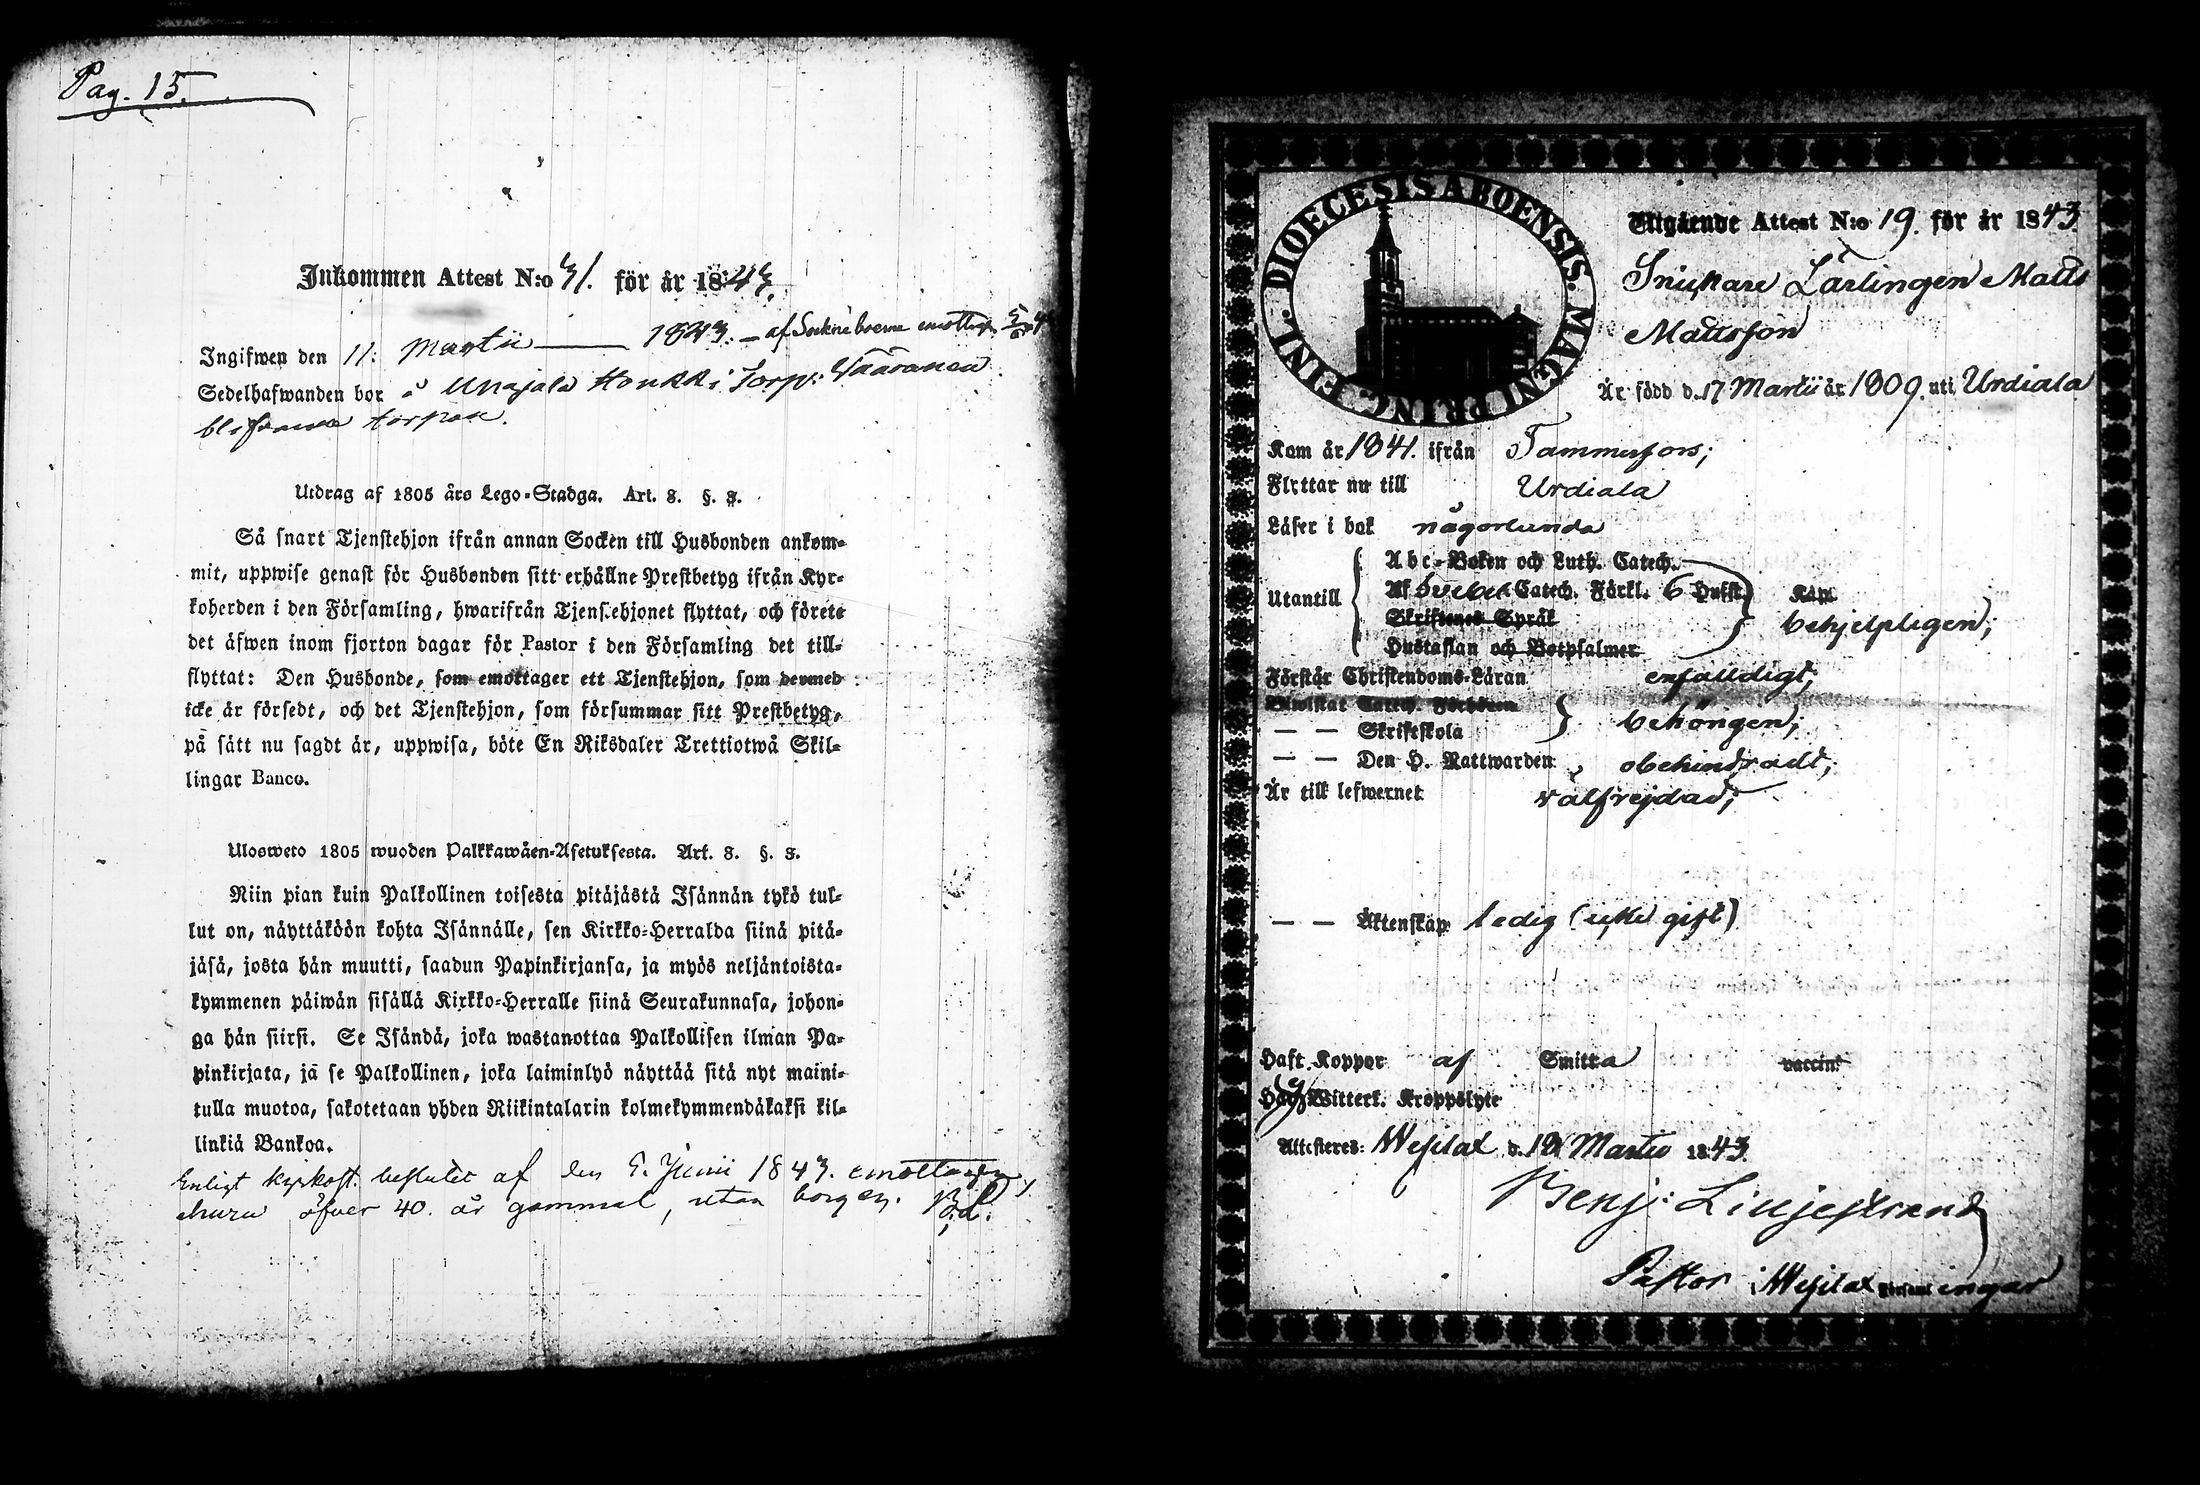 Pag. 15.
Inkommen Attest N:o 31. för år 1843.
Ingifwen den 11. Martii 1843. – af Sockneboerne emottagen
Sedelhafwanden bor å Unajala Honkki Torp:
blifvande torpare.
Utdrag af 1805 års Lego-Stadga. Art. 8. §. 3.
Så snart Tjenstehjon ifrån annan Socken till Husbonden ankom-
mit, uppwise genast för Husbonden sitt erhållne Prestbetyg ifrån Kyr-
koherden i den Församling, hwarifrån Tjenstehjonet flyttat, och förete
det äfwen inom fjorton dagar för Pastor i den Församling det till-
flyttat: Den Husbonde, som emottager ett Tjenstehjon, som dermed
icke är försedt, och det Tjenstehjon, som försummar sitt Prestbetyg,
på sätt nu sagdt är, uppwisa, böte En Riksdaler Trettiotwå Skil-
lingar Banco.
Ulosweto 1805 wuoden Palkkawäen-Asetuksesta. Art. 8. §. 3.
Niin pian kuin Palkollinen toisesta pitäjästä Isännän tykö tul-
lut on, näyttäköön kohta Isännälle, sen Kirkko-Herralda siinä pitä-
jäsä, josta hän muutti, saadun Papinkirjansa, ja myös neljäntoista-
kymmenen päiwän sisällä Kirkko-Herralle siinä Seurakunnasa, johon-
ga hän siirsi. Se Isändä, joka wastanottaa Palkollisen ilman Pa-
pinkirjata, ja se Palkollinen, joka laiminlyö näyttää sitä nyt maini-
tulla muotoa, sakotetaan yhden Riikintalarin kolmekymmendäkaksi kil-
linkiä Bankoa.
Enligt kyrkost. beslutet af den 5. Junii 1843. emottagen,
ehuru öfver 40. år gammal, utan borgen.
DIOECESIS ABOENSIS. MAGNI PRINC. FINL.
Utgående Attest N:o 19. för år 1843
Snickare Lärlingen Matts
Mattsson
Är född d. 17 Martii år 1809. uti Urdiala
Kom år 1841. ifrån Tammerfors;
Flyttar nu till Urdiala
Läser i bok någorlunda
Utantill
Abc-Boken och Luth. Catech.
Af Svebel. Catech. Förkl. 6 Hufst.
Skriftenes Språk
Hustaflan och Botpsalmer
behjelpligen;
Förstår Christendoms-Läran enfalldigt;
Bewistat Catech. Förhören
— — Skriftskola
behörigen;
— — Den H. Nattwarden obehindradt;
Är till lefwernet välfrejdad;
— — Äktenskap ledig (icke gift)
Haft Koppor af Smitta vaccin:
Witterl. Kroppslyte
Attesteres: Wesilax d. 19 Martii 1843.
Benj: Liljestrand
Pastor i Wesilax Församlingar